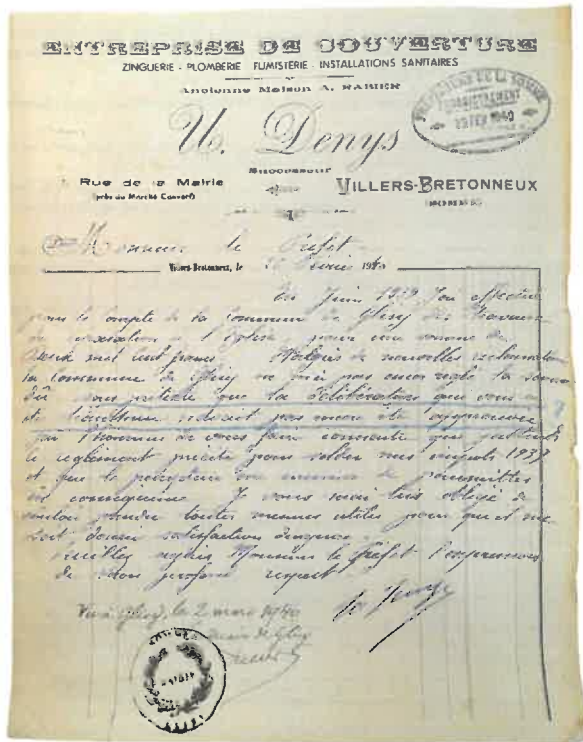 ENTREPRISE DE COUVERTURE
ZINGUERIE - PLOMBERIE FUMISTERIE - INSTALLATIONS SANITAIRES
Ancienne Maison A. RABIER
PRÉFECTURE DE LA SOMME
ENREGISTREMENT
FEV 1940
U. Denys
Successeur
Rue de la Mairie
(près du Marché Couvert)
VILLERS-BRETONNEUX
Monsieur le Préfet
Villers-Bretonneux, le 1940
En Juin 1939 J'ai effectué
pour le compte de la commune de Glisy des travaux
de réparation à l'Eglise pour une somme de
deux mil cent francs Malgré de nouvelles réclamations
la commune de Glisy ne m'a pas encore réglé la somme
que la délibération que
pas encore été approuvée
j'ai l'honneur de vous faire connaître que j'attends
le règlement pour solder mes impôts 1939
et que le percepteur me menace de poursuites
en conséquence Je vous serai très obligé de
vouloir prendre toutes mesures utiles pour qu'il me
soit donné satisfaction d'urgence
Veuillez agréer Monsieur le Préfet l'expression
de mon profond respect
Vu à Glisy, le 2 mars 1940
Maire de Glisy